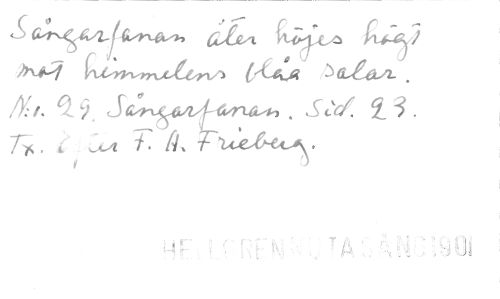 Sångarfanan åter höjes högt
mot himmelens blåa salar.
N:r. 29. Sångarfanan. Sid. 23.
Tx. efter F. A. Frieberg.
HELLGREN NUTA SÅNG 1901